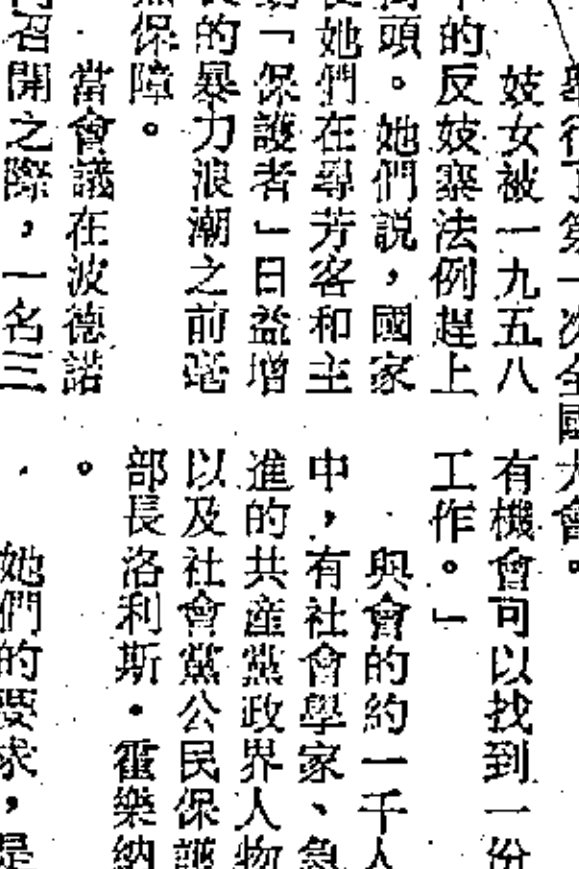 舉行了第一次全國大會。
妓女被一九五八
的反妓寨法例趕上
街頭。她們説，國家
使她們在尋芳客和主
「保護者」日益增
的暴力浪潮之前毫
無保障。
當會議在波德諾
召開之際，一名三
有機會可以找到一份
工作。」
與會的約一千人
中，有社會學家、急
進的共產黨政界人物
以及社會黨公民保護
部長洛利斯・霍樂納
。
她們的要求，是